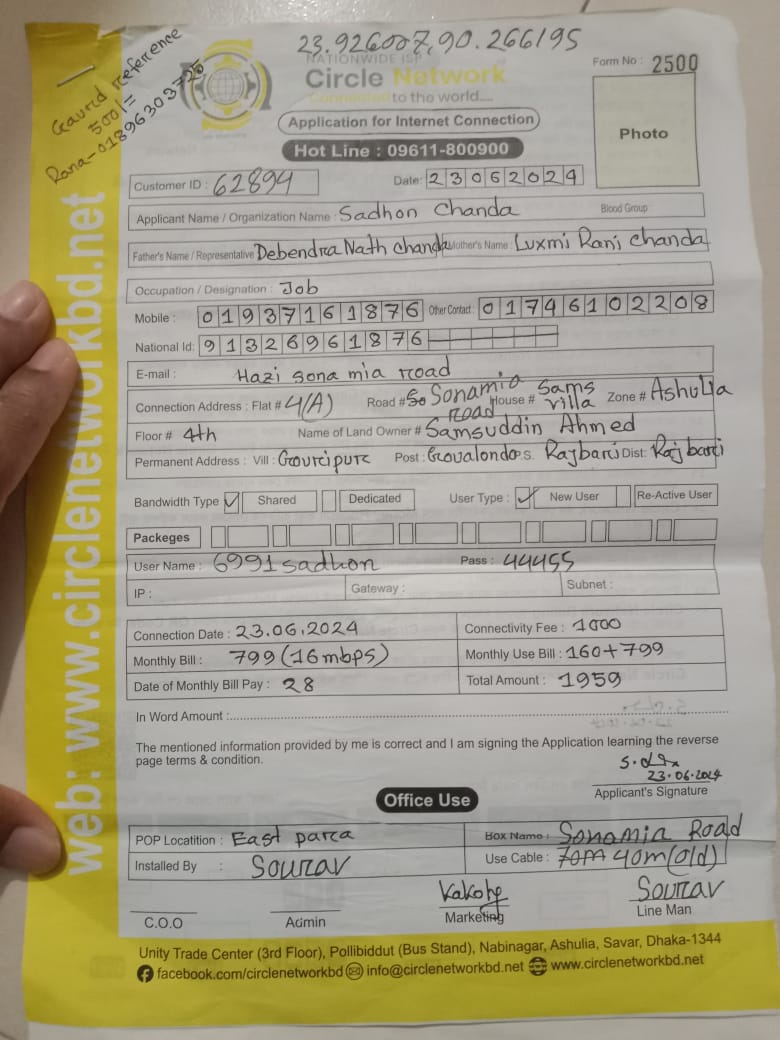 23.926007,90.266195
Gaurd reference
500/=
Rana-01896303725
NATIONWIDE ISP
Circle Network
Connected to the world....
Form No : 2500
Application for Internet Connection
Photo
Hot Line : 09611-800900
Customer ID : 62894
Date: 23062024
Applicant Name / Organization Name : Sadhon Chanda Blood Group
Father's Name / Representative Debendra Nath Chanda Mother's Name : Luxmi Rani Chanda
Occupation / Designation : Job
Mobile : 01937161876 Other Contact : 01746102208
National Id: 91326961876
E-mail : Hazi sona mia road
Connection Address : Flat # 4(A) Road # Sonamia road House # Sams villa Zone # Ashulia
Floor # 4th Name of Land Owner # Samsuddin Ahmed
Permanent Address : Vill : Gouripur Post : Goualondo P.S. Rajbari Dist: Rajbari
Bandwidth Type Shared Dedicated User Type : New User Re-Active User
Packeges
User Name : 6991sadhon Pass : 44455
IP : Gateway : Subnet :
Connection Date : 23.06.2024 Connectivity Fee : 1000
Monthly Bill : 799 (16mbps) Monthly Use Bill : 160+799
Date of Monthly Bill Pay : 28 Total Amount : 1959
In Word Amount :
The mentioned information provided by me is correct and I am signing the Application learning the reverse
page terms & condition.
23.06.2024
Applicant's Signature
Office Use
POP Locatition : East parca Box Name : Sonamia Road
Installed By : Sourav Use Cable : 70m 40m (old)
Sourav
C.O.O Admin Marketing Line Man
Unity Trade Center (3rd Floor), Pollibiddut (Bus Stand), Nabinagar, Ashulia, Savar, Dhaka-1344
facebook.com/circlenetworkbd info@circlenetworkbd.net www.circlenetworkbd.net
web: www.circlenetworkbd.net